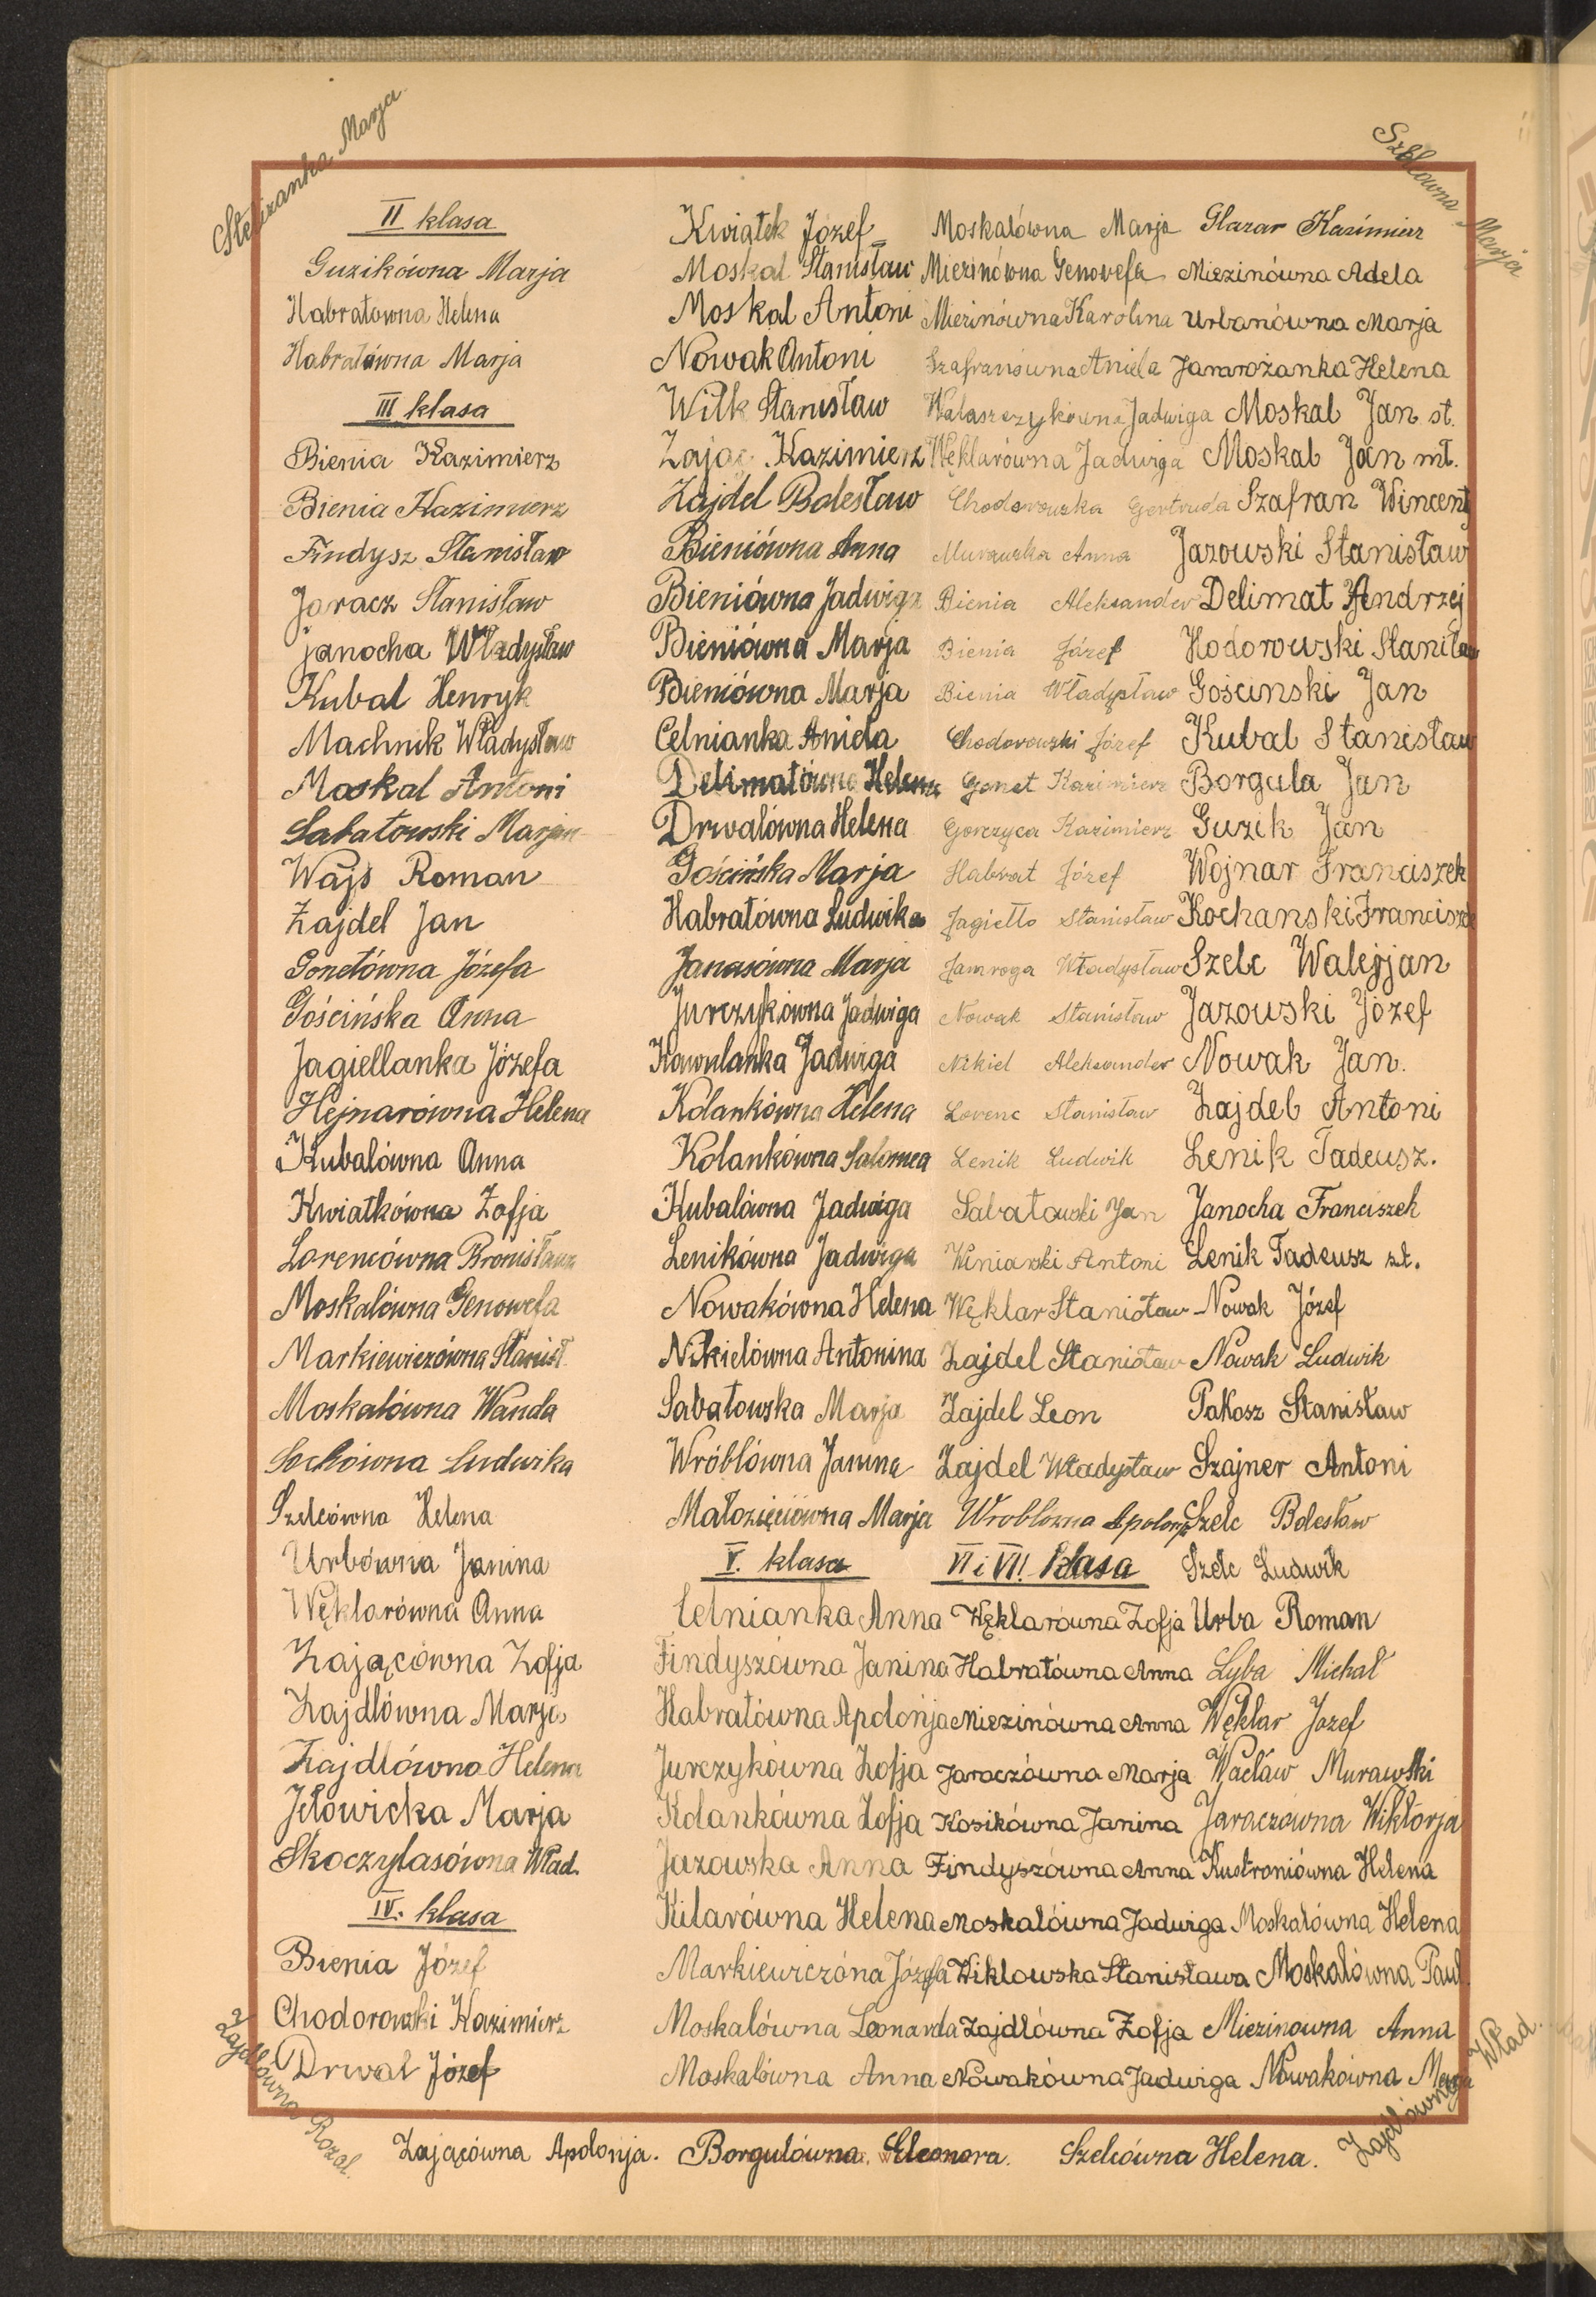 Marja
Szelcówna Marja
II klasa
Guzikówna Marja
Habratówna Helena
Habratówna Marja
III klasa
Bienia Kazimierz
Bienia Kazimierz
Findysz Stanisław
Jaracz Stanisław
Janocha Władysław
Kubal Henryk
Machnik Władysław
Moskal Antoni
Sabatowski Marjan
Wajs Roman
Zajdel Jan
Gonetówna Józefa
Gościńska Anna
Jagiellanka Józefa
Hejnarówna Helena
Kubalówna Anna
Kwiatkówna Zofja
Lorencówna Bronisława
Moskalówna Genowefa
Markiewiczówna Stanisł.
Moskalówna Wanda
Sochówna Ludwika
Szelcówna Helena
Urbówna Janina
Węklarówna Anna
Zającówna Zofja
Zajdlówna Marja
Zajdlówna Helena
Jełowicka Marja
Skoczylasówna Wład.
IV. klasa
Bienia Józef
Chodorowski Kazimierz
Drwal Józef
Kwiatek Józef
Moskal Stanisław
Moskal Antoni
Nowak Antoni
Wilk Stanisław
Zając Kazimierz
Zajdel Bolesław
Bieniówna Anna
Bieniówna Jadwiga
Bieniówna Marja
Bieniówna Marja
Celnianka Aniela
Delimatówna Helena
Drwalówna Helena
Gościńska Marja
Habratówna Ludwika
Janasówna Marja
Jurczykówna Jadwiga
Jadwiga
Kolankówna Helena
Kolankówna Salomea
Kubalówna Jadwiga
Lenikówna Jadwiga
Nowakówna Helena
Nikielówna Antonina
Sabatowska Marja
Wróblówna Janina
Małozięciówna Marja
V. klasa
Celnianka Anna
Findyszówna Janina
Habratówna Apolonja
Jurczykówna Zofja
Kolankówna Zofja
Jazowska Anna
Kilarówna Helena
Markiewiczóna Józefa
Moskalówna Leonarda
Moskalówna Anna
Moskalówna Marja
Miezinówna Genowefa
Miezinówna Karolina
Szafranówna Aniela
Walaszczykówna Jadwiga
Węklarówna Jadwiga
Chodorowska Gertruda
Murawska Anna
Bienia Aleksander
Bienia Józef
Bienia Władysław
Chodorowski Józef
Gonet Kazimierz
Gorczyca Kazimierz
Habrat Józef
Jagiełło Stanisław
Jamroga Władysław
Nowak Stanisław
Nikiel Aleksander
Lorenc Stanisław
Lenik Ludwik
Sabatowski Jan
Winiarski Antoni
Węklar Stanisław
Zajdel Stanisław
Zajdel Leon
Zajdel Władysław
Wroblówna Apolonja
VI i VII. klasa
Węklarówna Zofja
Habratówna Anna
Miezinówna Anna
Jaraczówna Marja
Kosikówna Janina
Findyszówna Anna
Moskalówna Jadwiga
Wiklowska Stanisława
Zajdlówna Zofja
Nowakówna Jadwiga
Glazar Kazimierz
Miezinówna Adela
Urbanówna Marja
Jamrożanka Helena
Moskal Jan st.
Moskal Jan mł.
Szafran Wincenty
Jazowski Stanisław
Delimat Andrzej
Hodorowski Stanisław
Gościnski Jan
Kubal Stanisław
Borgula Jan
Guzik Jan
Wojnar Franciszek
Kochanski Franciszek
Szelc Walerjan
Jazowski Józef
Nowak Jan.
Zajdel Antoni
Lenik Tadeusz.
Janocha Franciszek
Lenik Tadeusz st.
Nowak Józef
Nowak Ludwik
Pakosz Stanisław
Szajner Antoni
Szelc Bolesław
Szelc Ludwik
Urba Roman
Lyba Michał
Węklar Jozef
Wacław Murawski
Jaraczówna Wiktorja
Kustroniówna Helena
Moskalówna Helena
Moskalówna Paul.
Miezinowna Anna
Nowakówna Marja
Zajdlówna Rozal.
Zającówna Apolonja. Borgulówna Eleonora. Szelcówna Helena.
Zajdlówna Wład.